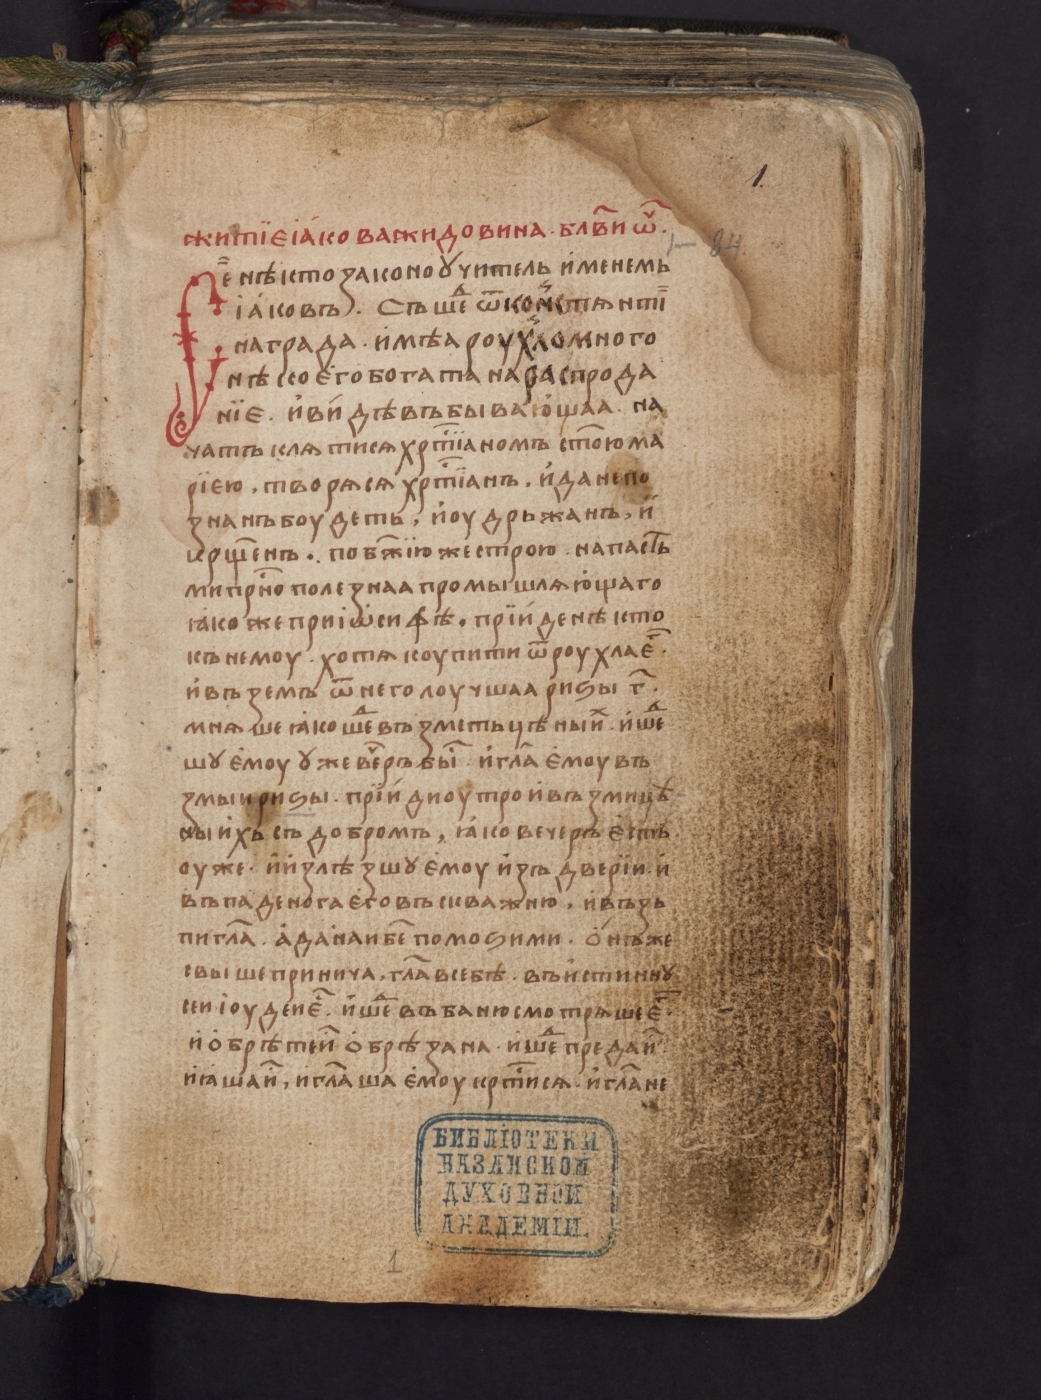 1.
житїе іа́кова жидовина. бл҃ви ѿ҃.
1 – 84.
Бѣ нѣкто законоу҆читель и҆менемь
іа́ковъ). Съ шеⷣ ѿ конⸯстѧнтї
награда. и҆мѣа роухⸯло много
нѣсоего богата на распрода
нїе. и҆ ви́дѣвъ бываю҆щаа. на
чатъ клѧтисѧ хрⷭ҇тїаномъ ст҃ою ма
рїею, творѧсѧ хрⷭ҇тїанъ, и҆ да не по
знанъ боудеть, и҆ оудръжанъ, и҆
крщ҃енъ. по бж҃їю же строю. напастъ
ми прⷭ҇но полезнаа промышлѧю҆щаго
ꙗко же при іѡ҆сифѣ. прїи́де нѣкто
къ немоу. хотѧ коупити ѿ роухла е҆гⷪ҇.
и҆ въземъ ѿ него лоучшаа ризы г҃.
мнѧше ꙗко шеⷣ възметь цѣны иⷯ. и҆ шеⷣ
шу е҆моу у҆же веⷱ҇ръ быⷭ҇. и҆ гл҃а е҆моу въ
змы и ризы. прїи́ди оутро и҆ възми цѣ
ны и҆хъ съ добромъ, ꙗко вечеръ е҆сть
оуже. и҆ и҆злѣзшу е҆моу и҆зъ дверїи. и҆
въпаде нога е҆го въ скважню, и҆ възъ
пи гл҃а. а҆дана́и бе҃ помози ми. ѻ҆нъ же
свыше принича, гл҃а в себѣ. въ и҆стинну
сеи і҆оудеи е҆сⷭ҇. и҆ шеⷣ въ баню смотрѧше е҆гⷪ҇.
и҆ ѻ҆брѣте и҆ ѻ҆брѣзана. и҆ шеⷣ предаи҆.
и҆ ꙗша и҆, и҆ гл҃аша е҆моу крⷭ҇тисѧ. и҆ гл҃а не
БИБЛІОТЕКИ
КАЗАНСКОЙ
ДУХОВНОЙ
АКАДЕМІИ.
1